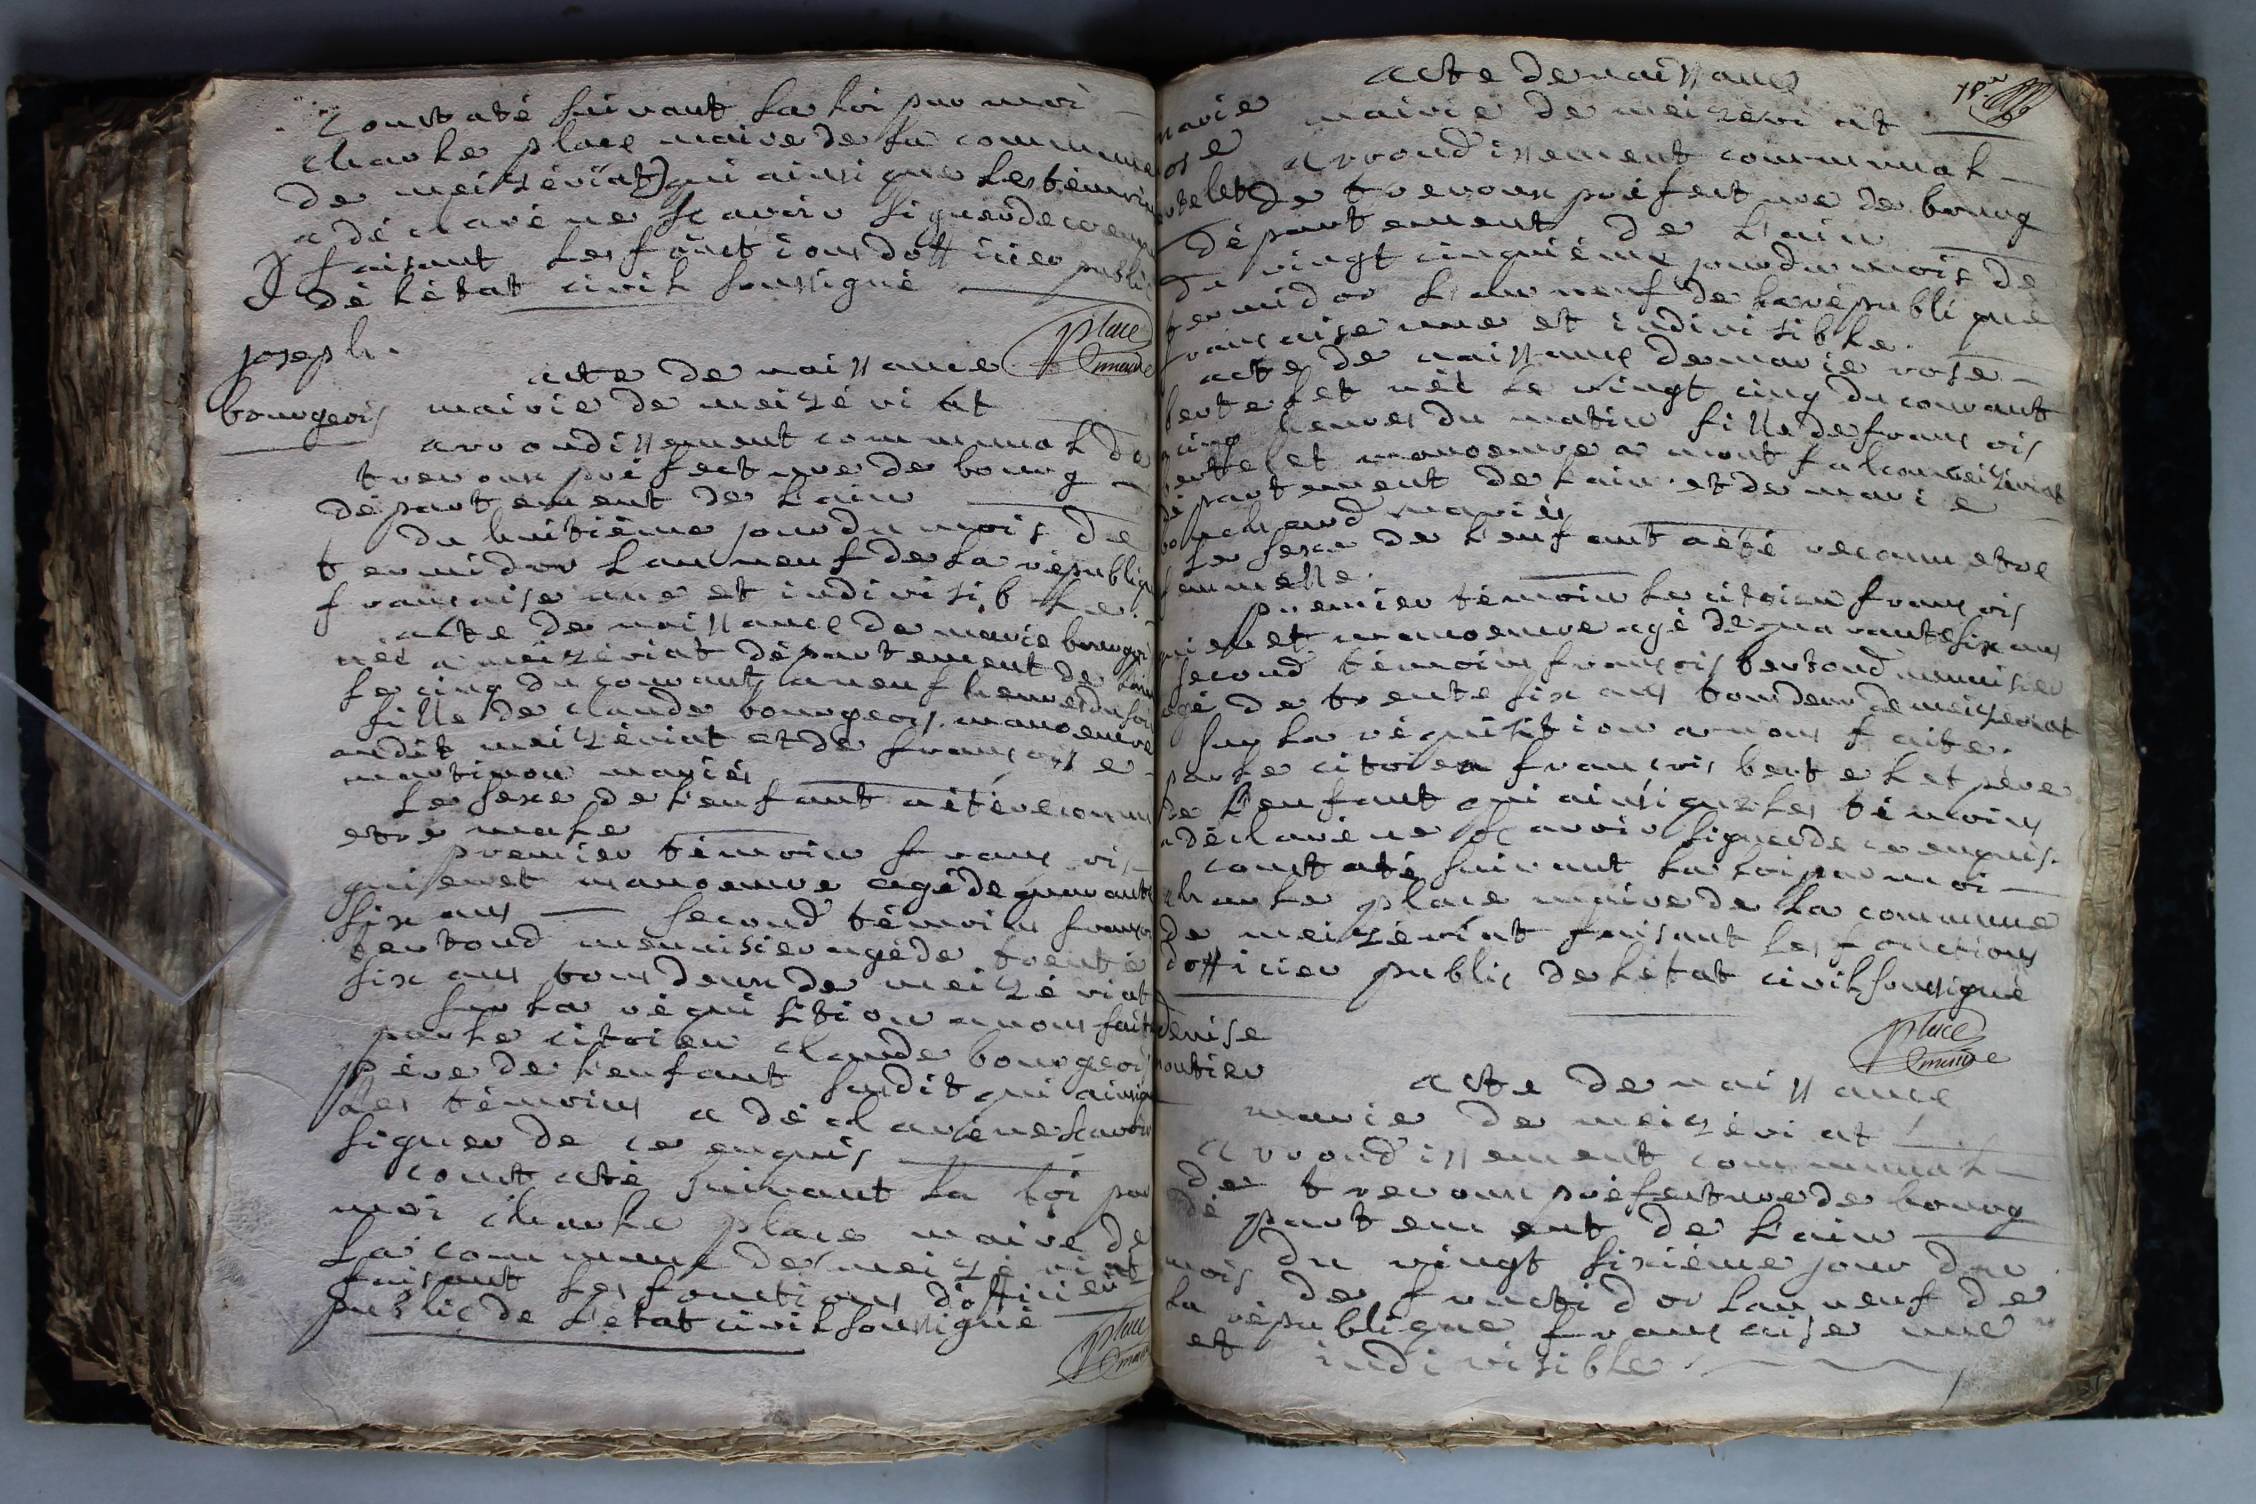 Constaté suivant la loi par moi
charle place maire de la commune
de meizériat qui ainsi que les témoins
a déclaré ne scavoir signer de ce enquis
faisant les fonctions dofficier public
dé létat civil soussigné
place
maire
joseph
bourgeois
acte de naissance
mairie de meizériat
arrondissement communal de
trevoux préfecture de bourg
département de lain
du huitième jour du mois de
termidor lan neuf de la républiqu
française une et indivisible
acte de naissance de marie bourgeoi
néé a meizériat département de lain
le cinq du courant a neuf heures du soir
fille de claude bourgeois manoeuvre
audit meizériat et de françoise
martinon mariés
Le sexe de lenfant a été reconnu
etre male
premier témoin françois
manoeuvre agé de quarante
six ans second témoin françois
bertoud menuisier agé de trente
six ans tous deux de meizériat
sur la réquisition a nous faite
par le citoien claude bourgeois
père de lenfant susdit qui ainsi que
les témoins a déclaré ne scavoir
signer de ce enquis
constaté suivant la loi par
moi charle place maire de
la commune de meizériat
faisant les fonctions dofficier
public de létat civil soussigné
place
maire
acte de naissance
marie
ose
rtelet
mairie de meizériat
arrondissement communal
de trevoux préfecture de bourg
département de lain
du vingt cinquième jour du mois de
termidor lan neuf de la république
française une et indivisible
acte de naissance de marie rose
bertelet néé le vingt cinq du courant
a cinq heures du matin fille de françois
bertelet manoeuvre a montfalcon meizériat
département de lain et de marie
mariés
Le sexe de lenfant a été reconnu etre
femmelle
premier témoin le citoien françois
manoeuvre agé de quarante six ans
second témoin françois bertoud menuisier
agé de trente six ans tous deux de meizériat
sur la réquisition a nous faite
par le citoien françois bertelet père
de lenfant qui ainsi que les témoins
a déclaré ne scavoir signer de ce enquis
constaté suivant la loi par moi
charle place maire de la commune
de meizériat faisant les fonctions
dofficier public de létat civil soussigné
place
maire
denise
moutier
acte de naissance
mairie de meizériat
arrondissement communal
de trevoux préfecture de bourg
département de lain
du vingt sixième jour du
mois de fructidor lan neuf de
la république française une
et indivisible